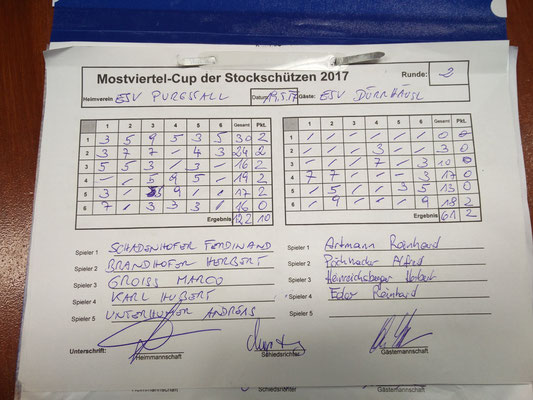 Mostviertel-Cup der Stockschützen 2017 Runde: 3
Heimverein ESV PURGSTALL Datum 19.5.17 Gäste: ESV DÜRNHÄUSL
1 2 3 4 5 6 Gesamt Pkt. 1 2 3 4 5 6 Gesamt Pkt.
1 3 5 9 5 3 5 30 2 1 / / / / / / 0 0
2 3 7 7 - 4 3 24 2 2 / / / 3 / / 3 0
3 5 5 3 / - 3 16 2 3 - / / 7 / 3 10 0
4 - - 5 9 5 - 19 2 4 7 7 - - / 3 17 0
5 3 / 5 9 / / 17 2 5 / 5 / / 3 5 13 0
6 7 / 3 3 3 / 16 0 6 / 9 / - 9 / 18 2
Ergebnis 122 10 Ergebnis 61 2
Spieler 1 SCHADENHOFER FERDINAND Spieler 1 Artmann Reinhard
Spieler 2 BRANDHOFER HERBERT Spieler 2 Pöchhacker Alfred
Spieler 3 GROISS MARCO Spieler 3 Heinreichsberger Hubert
Spieler 4 KARL HUBERT Spieler 4 Eder Reinhard
Spieler 5 UNTERHUBER ANDREAS Spieler 5
Unterschrift: Heimmannschaft Schiedsrichter Gästemannschaft
Heimmannschaft Schiedsrichter Gästemannschaft